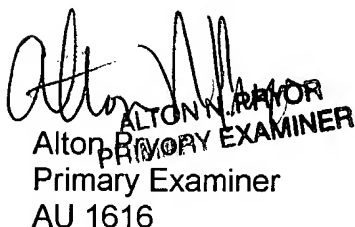 ALTON N. PRYOR
PRIMARY EXAMINER
Alton Pryor
Primary Examiner
AU 1616